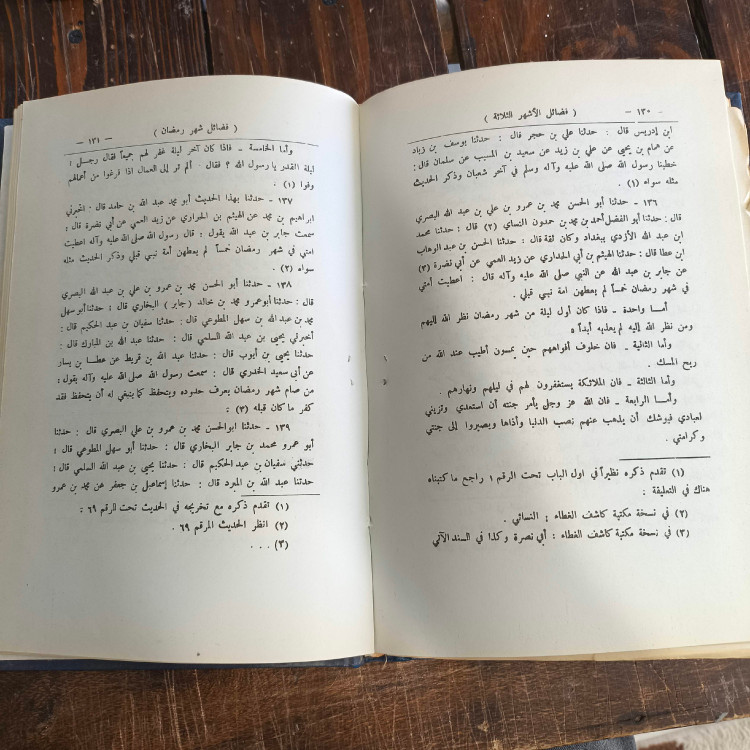 - ١٣٠ - ( فضائل الأشهر الثلاثة )
ابن إدريس قال : حدثنا علي بن حجر قال : حدثنا يوسف بن زياد
عن همام بن يحيى عن علي بن زيد عن سعيد بن المسيب عن سلمان قال :
خطبنا رسول الله صلى الله عليه وآله وسلم في آخر شعبان وذكر الحديث
مثله سواء (١) .
١٣٦ - حدثنا أبو الحسن محمد بن عمرو بن علي بن عبد الله البصري
قال : حدثنا أبو الفضل أحمد بن محمد بن حمدون النساي (٢) قال : حدثنا محمد
ابن عبد الله الأزدي ببغداد وكان ثقة قال : حدثنا الحسن بن عبد الوهاب
ابن عطا قال : حدثنا الهيثم بن أبي الحداري عن زيد العمي عن أبي نضرة (٣)
عن جابر بن عبد الله عن النبي صلى الله عليه وآله قال : اعطيت أمتي
في شهر رمضان خمساً لم يعطهن امة نبي قبلي .
أما واحدة - فاذا كان أول ليلة من شهر رمضان نظر الله إليهم
ومن نظر الله إليه لم يعذبه أبداً ،
وأما الثانية - فان خلوف أفواههم حين يمسون أطيب عند الله من
ريح المسك .
وأما الثالثة - فان الملائكة يستغفرون لهم في ليلهم ونهارهم .
وأما الرابعة - فان الله عز وجل يأمر جنته أن استعدي وتزيني
لعبادي فيوشك أن يذهب عنهم نصب الدنيا وأذاها ويصيروا إلى جنتي
وكرامتي .
(١) تقدم ذكره نظيراً في اول الباب تحت الرقم ١ راجع ما كتبناه
هناك في التعليقة :
(٢) في نسخة مكتبة كاشف الغطاء : النسائي .
(٣) في نسخة مكتبة كاشف الغطاء : أبي نصرة وكذا في السند الآتي
( فضائل شهر رمضان ) - ١٣١ -
وأما الخامسة - فاذا كان آخر ليلة غفر لهم جميعاً فقال رجل :
ليلة القدر يا رسول الله ؟ فقال : ألم تر إلى العمال اذا فرغوا من أعمالهم
وفوا (١) .
١٣٧ - حدثنا بهذا الحديث أبو محمد عبد الله بن حامد قال : أخبرني
ابراهيم بن محمد عن الهيثم بن الحراري عن زيد العمي عن أبي نضرة قال :
سمعت جابر بن عبد الله يقول : قال رسول الله صلى الله عليه وآله اعطيت
امتي في شهر رمضان خمساً لم يعطهن أمة نبي قبلي وذكر الحديث مثله
سواء (٢) .
١٣٨ - حدثنا أبو الحسن محمد بن عمرو بن علي بن عبد الله البصري
قال : حدثنا أبو عمرو محمد بن خالد ( جابر ) البخاري قال : حدثنا أبو سهل
محمد بن عبد الله بن سهل المطوعي قال : حدثنا سفيان بن عبد الحكيم قال :
أخبرني يحيى بن عبد الله السلمي قال : حدثنا عبد الله بن المبارك قال :
حدثنا يحيى بن أيوب قال : حدثنا عبد الله بن قريط عن عطا بن يسار
عن أبي سعيد الخدري قال : سمعت رسول الله صلى الله عليه وآله يقول :
من صام شهر رمضان يعرف حدوده ويتحفظ كما ينبغي له أن يتحفظ فقد
كفر ما كان قبله (٣) :
١٣٩ - حدثنا ابو الحسن محمد بن عمرو بن علي البصري قال : حدثنا
أبو عمرو محمد بن جابر البخاري قال : حدثنا أبو سهل المطوعي قال :
حدثني سفيان بن عبد الحكيم قال : حدثنا يحيى بن عبد الله السلمي قال :
حدثنا عبد الله بن المبرد قال : حدثنا إسماعيل بن جعفر عن محمد بن عمرو
(١) تقدم ذكره مع تخريجه في الحديث تحت للرقم ٦٩ :
(٢) انظر الحديث المرقم ٦٩ .
(٣) . . .